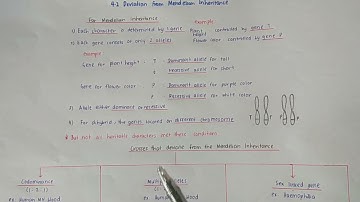 4.2 Deviation from Mendelian Inheritance
For Mendelian Inheritance
1) Each character is determined by 1 gene
Example
Plant height controlled by gene T
Flower color controlled by gene P
2) Each gene consists of only 2 alleles
Example
Gene for plant height : T Dominant allele for tall
t Recessive allele for short
Gene for flower color : P Dominant allele for purple color
p Recessive allele for white color
3) Allele either dominant or recessive
4) For dihybrid : the genes located on different chromosome
T t P p
But not all heritable characters meet these conditions
Crosses that deviate from the Mendelian Inheritance
Codominance
(1 : 2 : 1)
ex: Human MN blood
Multiple alleles
ex: Human
Sex linked gene
ex: Haemophilia